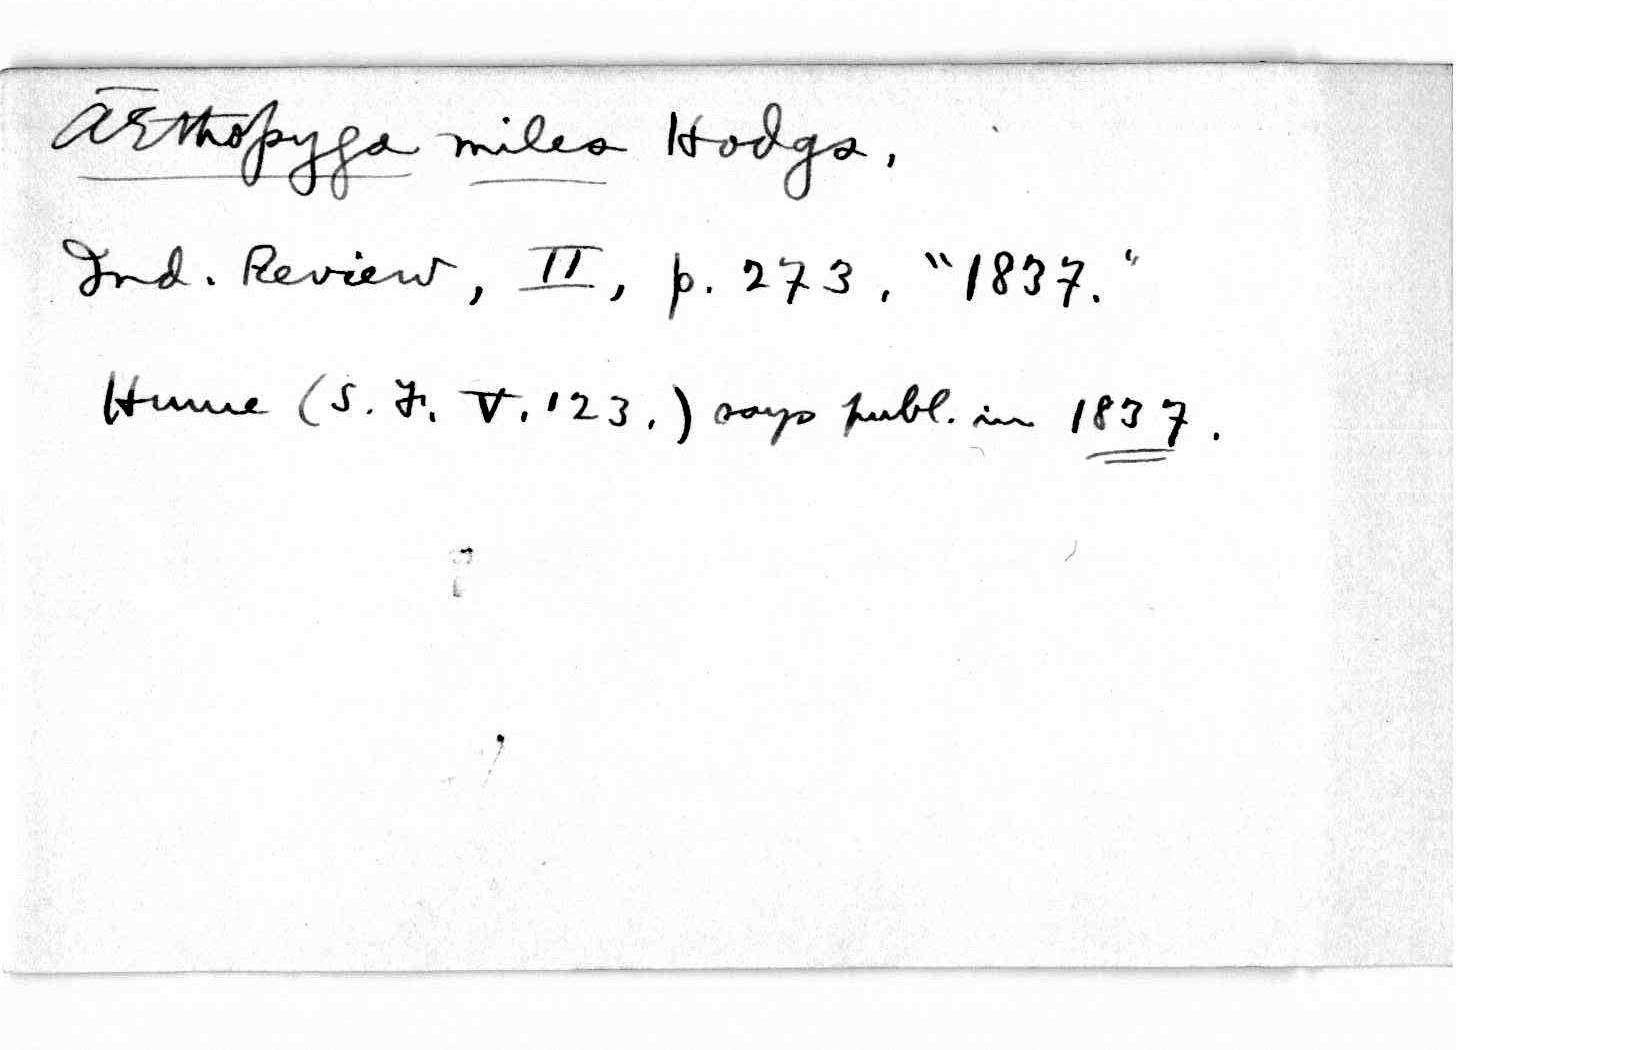 Æthopyga miles Hodgs,
Ind. Review, II, p. 273. "1837."
Hume (S. F. V. 123.) says publ. in 1837.